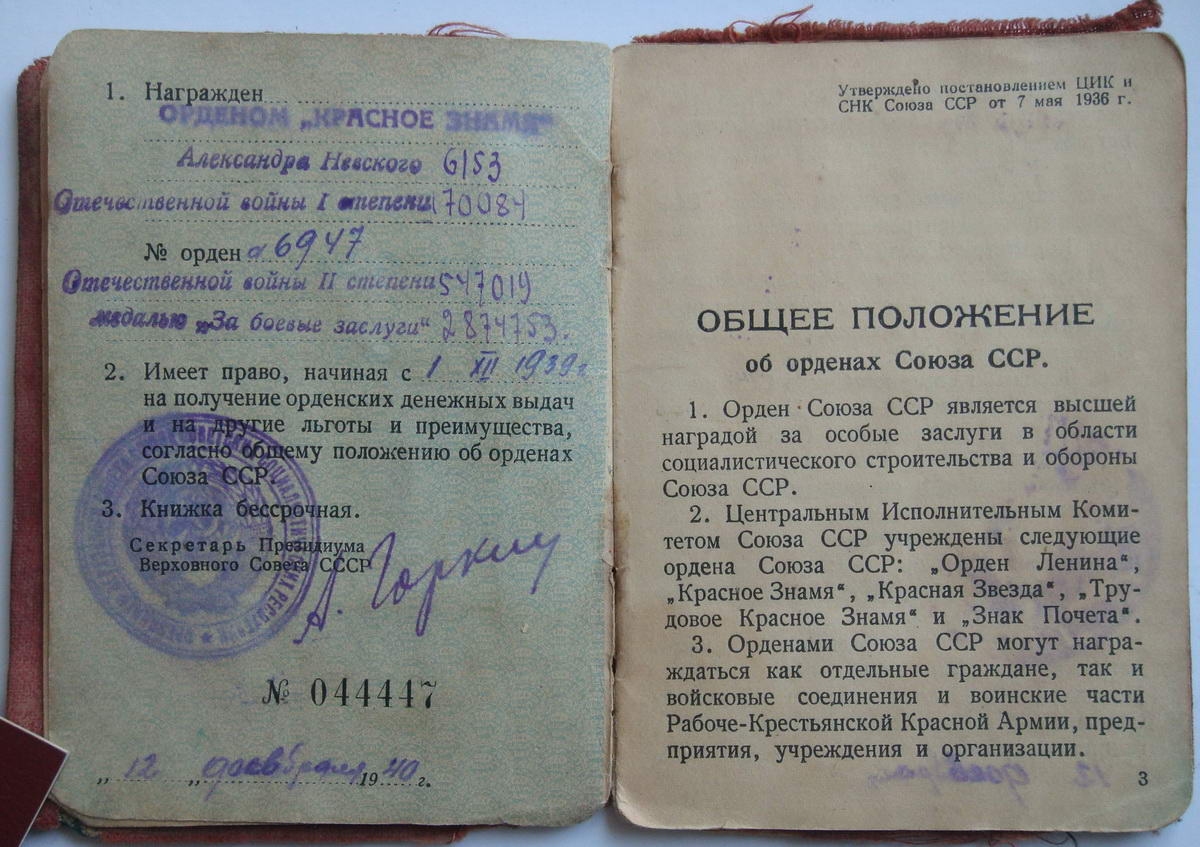 1. Награжден
ОРДЕНОМ „КРАСНОЕ ЗНАМЯ"
Александра Невского 6153
Отечественной войны I степени 170084
№ орден а 6947
Отечественной войны II степени 547019
медалью „За боевые заслуги" 2874753.
2. Имеет право, начиная с 1 XII 1939 г
на получение орденских денежных выдач
и на другие льготы и преимущества,
согласно общему положению об орденах
Союза ССР.
3. Книжка бессрочная.
Секретарь Президиума
Верховного Совета СССР
А. Горкин
№ 044447
„ 12 „ февраля 1940 г.
Утверждено постановлением ЦИК и
СНК Союза ССР от 7 мая 1936 г.
ОБЩЕЕ ПОЛОЖЕНИЕ
об орденах Союза ССР.
1. Орден Союза ССР является высшей
наградой за особые заслуги в области
социалистического строительства и обороны
Союза ССР.
2. Центральным Исполнительным Коми-
тетом Союза ССР учреждены следующие
ордена Союза ССР: „Орден Ленина",
„Красное Знамя", „Красная Звезда", „Тру-
довое Красное Знамя" и „Знак Почета".
3. Орденами Союза ССР могут награ-
ждаться как отдельные граждане, так и
войсковые соединения и воинские части
Рабоче-Крестьянской Красной Армии, пред-
приятия, учреждения и организации.
3